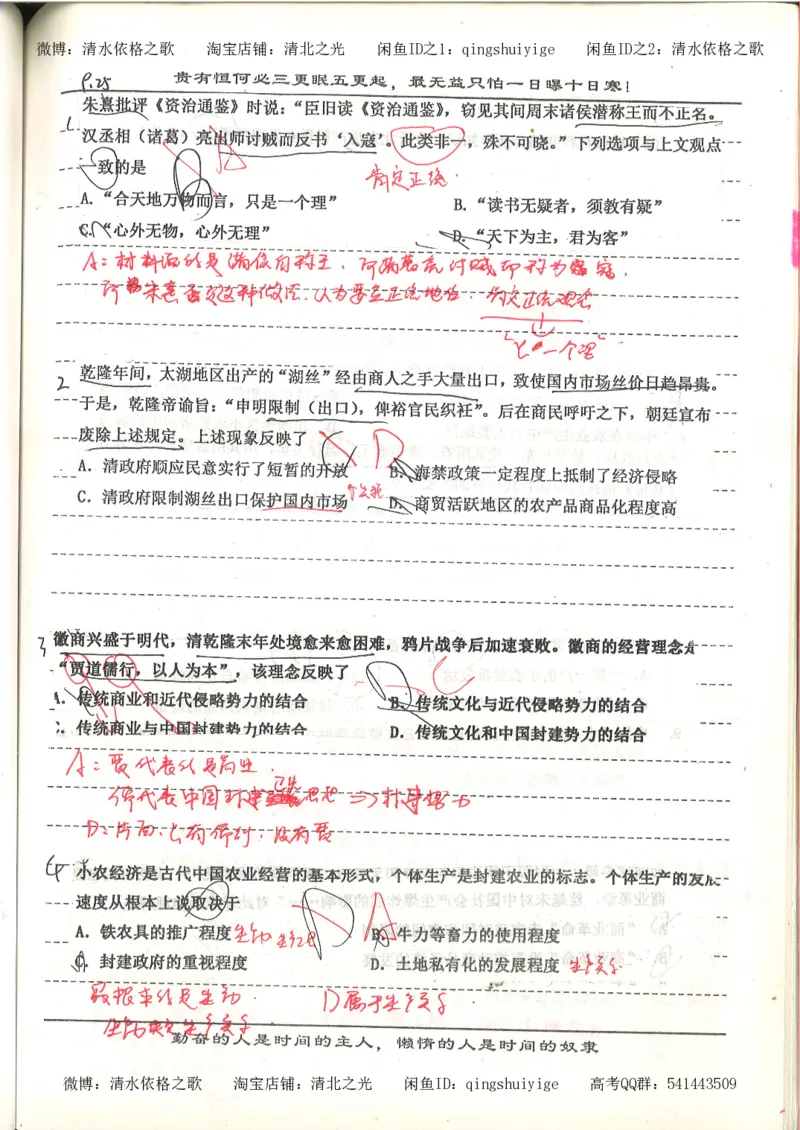 微博：清水依格之歌 淘宝店铺：清北之光 闲鱼ID之1：qingshuiyige 闲鱼ID之2：清水依格之歌
9.25 贵有恒何必三更眠五更起，最无益只怕一日曝十日寒！
1. 朱熹批评《资治通鉴》时说：“臣旧读《资治通鉴》，窃见其间周末诸侯潜称王而不正名。
汉丞相（诸葛）亮出师讨贼而反书‘入寇’。此类非一，殊不可晓。”下列选项与上文观点
一致的是 A
肯定正统.
A. “合天地万物而言，只是一个理” B. “读书无疑者，须教有疑”
C. “心外无物，心外无理” D. “天下为主，君为客”
A：材料说的是诸侯自称王，
肯定正统观念
“只一个理”
2 乾隆年间，太湖地区出产的“湖丝”经由商人之手大量出口，致使国内市场丝价日趋昂贵。
于是，乾隆帝谕旨：“申明限制（出口），俾裕官民织衽”。后在商民呼吁之下，朝廷宣布
废除上述规定。上述现象反映了 D
A. 清政府顺应民意实行了短暂的开放 B. 海禁政策一定程度上抵制了经济侵略
C. 清政府限制湖丝出口保护国内市场 D. 商贸活跃地区的农产品商品化程度高
3 徽商兴盛于明代，清乾隆末年处境愈来愈困难，鸦片战争后加速衰败。徽商的经营理念是
“贾道儒行，以人为本”。该理念反映了 C
A. 传统商业和近代侵略势力的结合 B. 传统文化与近代侵略势力的结合
C. 传统商业与中国封建势力的结合 D. 传统文化和中国封建势力的结合
A：贾代表的是商业.
儒代表中国封建思想⇒封建势力
D：片面，只有儒行，没有贾
4 小农经济是古代中国农业经营的基本形式，个体生产是封建农业的标志。个体生产的发展
速度从根本上说取决于 A
A. 铁农具的推广程度 生产力 生产工具 B. 牛力等畜力的使用程度
C. 封建政府的重视程度 D. 土地私有化的发展程度 生产关系
最根本的是生产力. D属于生产关系
生产力决定生产关系.
勤奋的人是时间的主人，懒惰的人是时间的奴隶
微博：清水依格之歌 淘宝店铺：清北之光 闲鱼ID：qingshuiyige 高考QQ群：541443509